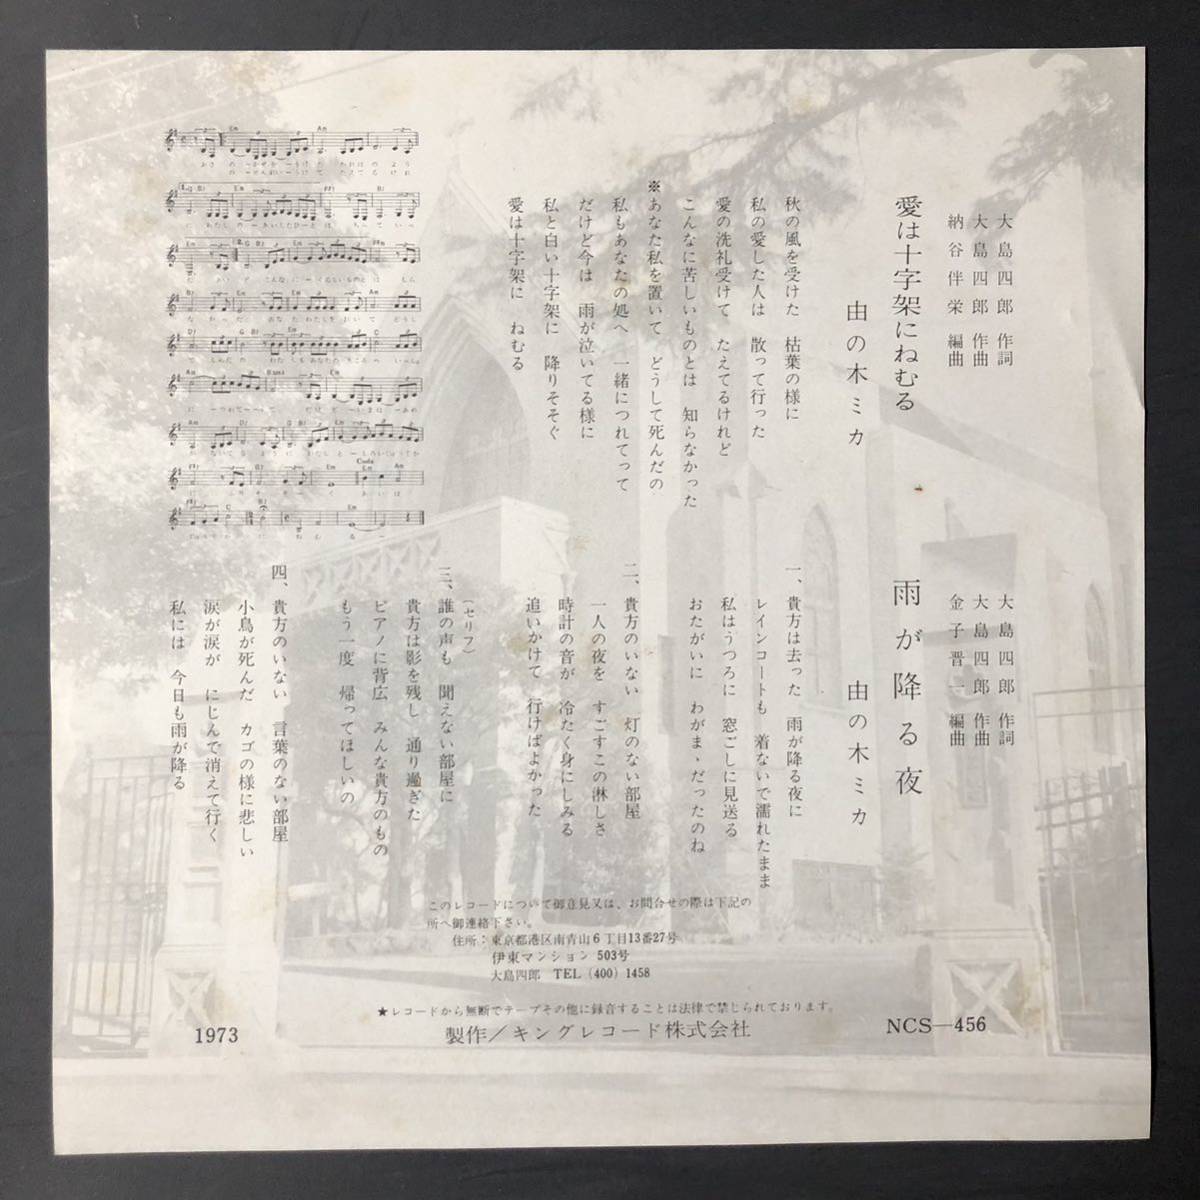 大島四郎 作詞
大島四郎 作曲
納谷伴栄 編曲
愛は十字架にねむる
由の木ミカ
秋の風を受けた 枯葉の様に
私の愛した人は 散って行った
愛の洗礼受けて たえてるけれど
こんなに苦しいものとは 知らなかった
※あなた私を置いて どうして死んだの
私もあなたの処へ 一緒につれてって
だけど今は 雨が泣いてる様に
私と白い十字架に 降りそそぐ
愛は十字架に ねむる
大島四郎 作詞
大島四郎 作曲
金子晋一 編曲
雨が降る夜
由の木ミカ
一、貴方は去った 雨が降る夜に
レインコートも 着ないで濡れたまま
私はうつろに 窓ごしに見送る
おたがいに わがまゝだったのね
二、貴方のいない 灯のない部屋
一人の夜を すごすこの淋しさ
時計の音が 冷たく身にしみる
追いかけて 行けばよかった
(セリフ)
三、誰の声も 聞えない部屋に
貴方は影を残し 通り過ぎた
ピアノに背広 みんな貴方のもの
もう一度 帰ってほしいの
四、貴方のいない 言葉のない部屋
小鳥が死んだ カゴの様に悲しい
涙が涙が にじんで消えて行く
私には 今日も雨が降る
このレコードについて御意見又は、お問合せの際は下記の
所へ御連絡下さい。
住所：東京都港区南青山6丁目13番27号
伊東マンション 503号
大島四郎 TEL (400) 1458
★レコードから無断でテープその他に録音することは法律で禁じられております。
1973
製作／キングレコード株式会社
NCS—456